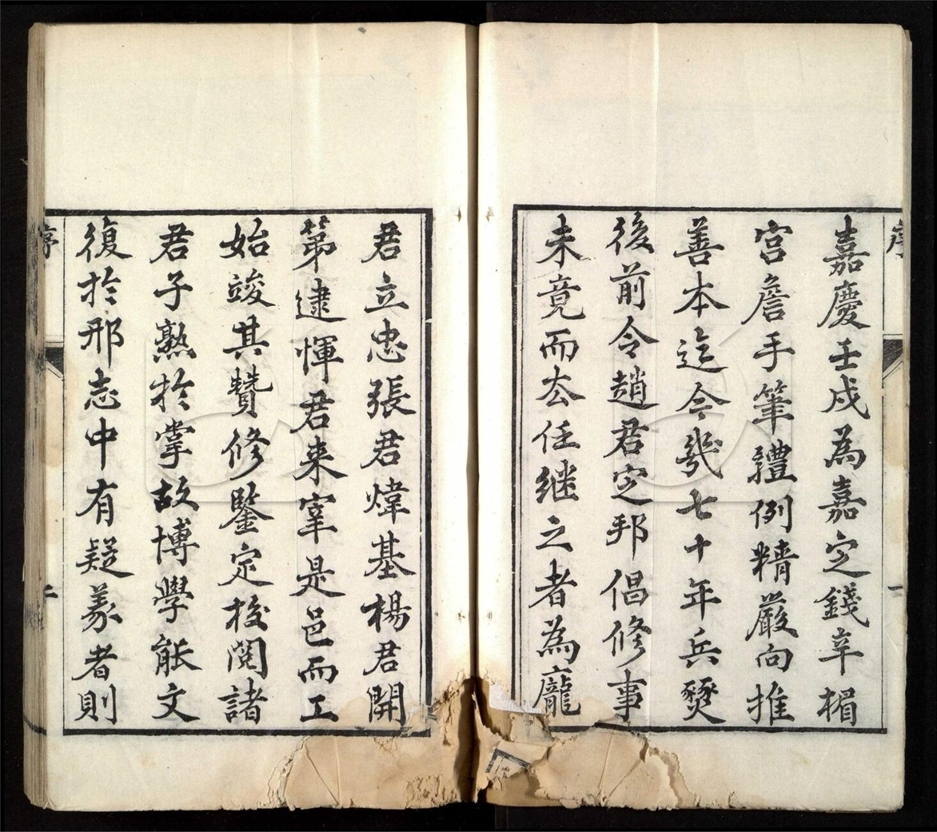 序
一
嘉慶壬戌為嘉定錢辛楣
宫詹手筆體例精嚴向推
善本迄今幾七十年兵燹
後前令趙君定邦倡修事
未竟而去任继之者為龐
君立忠張君煒基楊君開
第逮惲君来宰是邑而工
始竣其贊修鑒定校閱諸
君子熟於掌故博學能文
復於邢志中有疑義者則
序
二